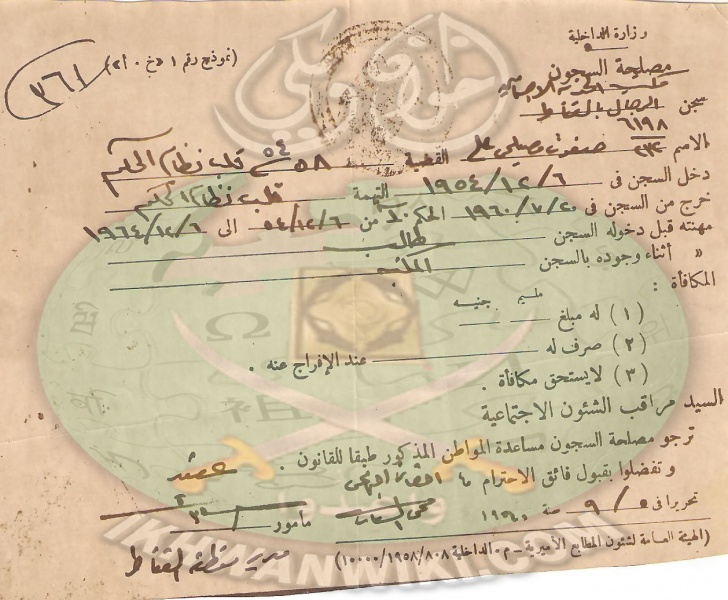 وزارة الداخلية
مصلحة السجون
(نموذج رقم ١ «خ٠أ٢»)
٣٦١
سجن الرجال بالقناطر
٦١٩٨
الاسم صفوت القضية ٥٨ سنة ٥٤ قلب نظام الحكم
دخل السجن فى ١٩٥٤/١٢/٦ التهمة قلب نظام الحكم
خرج من السجن فى ١٩٦٠/٧/٢٠ الحكم من ٥٤/١٢/٦ الى ١٩٦٤/١٢/٦
مهنته قبل دخوله السجن طالب
« أثناء وجوده بالسجن المكتب
المكافأة :
مليم جنيه
(١) له مبلغ
(٢) صرف له عند الإفراج عنه .
(٣) لايستحق مكافأة .
السيد مراقب الشئون الاجتماعية
ترجو مصلحة السجون مساعدة المواطن المذكور طبقا للقانون .
وتفضلوا بقبول فائق الاحترام ،
تحريرا فى ٥ / ٩ سنة ١٩٦٠
مأمور
(الهيئة العامة لشئون المطابع الأميرية – م٠الداخلية ١٠٠٠٠/١٩٥٨/٨٠٨)
IKHWANWIKI.COM